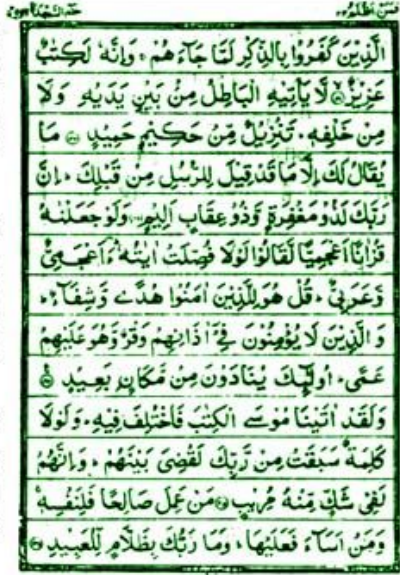 فمن اظلم ٢٤
حٰمٓ السجدة ٤١
الَّذِيْنَ كَفَرُوْا بِالذِّكْرِ لَمَّا جَآءَهُمْ ۚ وَاِنَّهٗ لَكِتٰبٌ
عَزِيْزٌ ۙ لَّا يَاْتِيْهِ الْبَاطِلُ مِنْۢ بَيْنِ يَدَيْهِ وَلَا
مِنْ خَلْفِهٖ ؕ تَنْزِيْلٌ مِّنْ حَكِيْمٍ حَمِيْدٍ مَا
يُقَالُ لَكَ اِلَّا مَا قَدْ قِيْلَ لِلرُّسُلِ مِنْ قَبْلِكَ ؕ اِنَّ
رَبَّكَ لَذُوْ مَغْفِرَةٍ وَّذُوْ عِقَابٍ اَلِيْمٍ وَلَوْ جَعَلْنٰهُ
قُرْاٰنًا اَعْجَمِيًّا لَّقَالُوْا لَوْلَا فُصِّلَتْ اٰيٰتُهٗ ؕ ءَاَعْجَمِيٌّ
وَّعَرَبِيٌّ ؕ قُلْ هُوَ لِلَّذِيْنَ اٰمَنُوْا هُدًى وَّشِفَآءٌ ؕ
وَالَّذِيْنَ لَا يُؤْمِنُوْنَ فِيْٓ اٰذَانِهِمْ وَقْرٌ وَّهُوَ عَلَيْهِمْ
عَمًى ؕ اُولٰٓئِكَ يُنَادَوْنَ مِنْ مَّكَانٍۢ بَعِيْدٍ
وَلَقَدْ اٰتَيْنَا مُوْسَى الْكِتٰبَ فَاخْتُلِفَ فِيْهِ ؕ وَلَوْلَا
كَلِمَةٌ سَبَقَتْ مِنْ رَّبِّكَ لَقُضِيَ بَيْنَهُمْ ؕ وَاِنَّهُمْ
لَفِيْ شَكٍّ مِّنْهُ مُرِيْبٍ مَنْ عَمِلَ صَالِحًا فَلِنَفْسِهٖ
وَمَنْ اَسَآءَ فَعَلَيْهَا ؕ وَمَا رَبُّكَ بِظَلَّامٍ لِّلْعَبِيْدِ